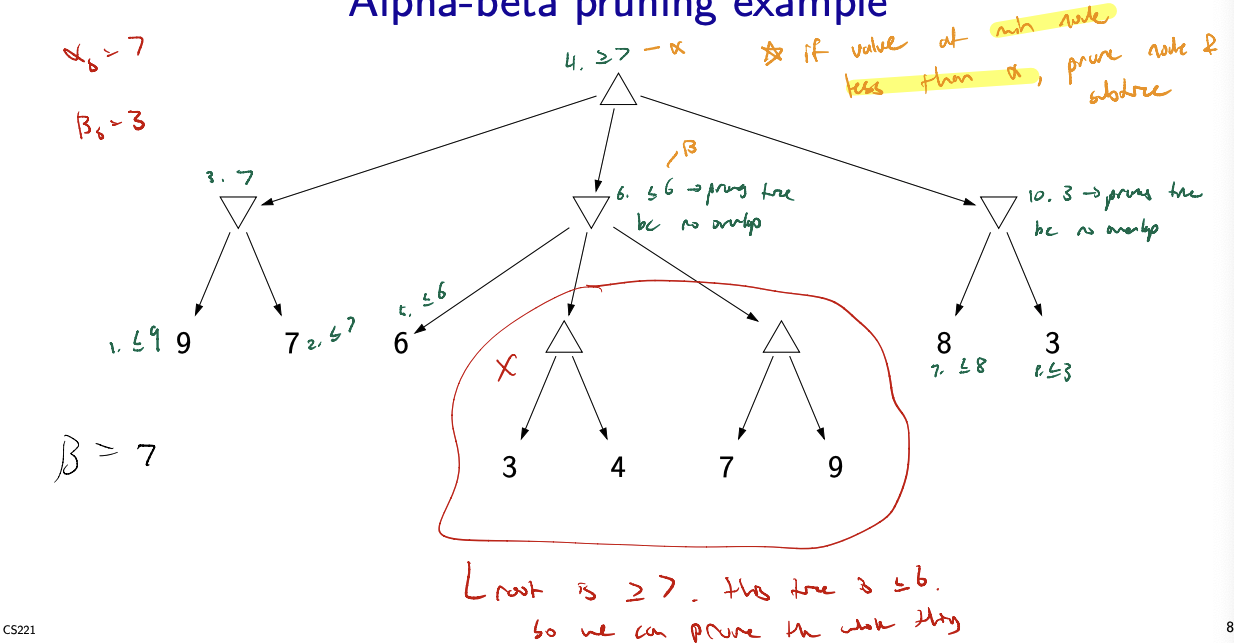 Alpha-beta pruning example
αs = 7
4. ≥7 – α
☆ if value at min node
less than α, prune node &
subtree
βs = 3
β
3. 7
6. ≤ 6 → prune tree
bc no overlap
10. 3 → prune tree
bc no overlap
5. ≤6
1. ≤9 9
7 2. ≤7
6
8
3
7. ≤8
8. ≤3
X
β = 7
3
4
7
9
root is ≥ 7. this tree is ≤ 6.
so we can prune the whole thing
CS221
8